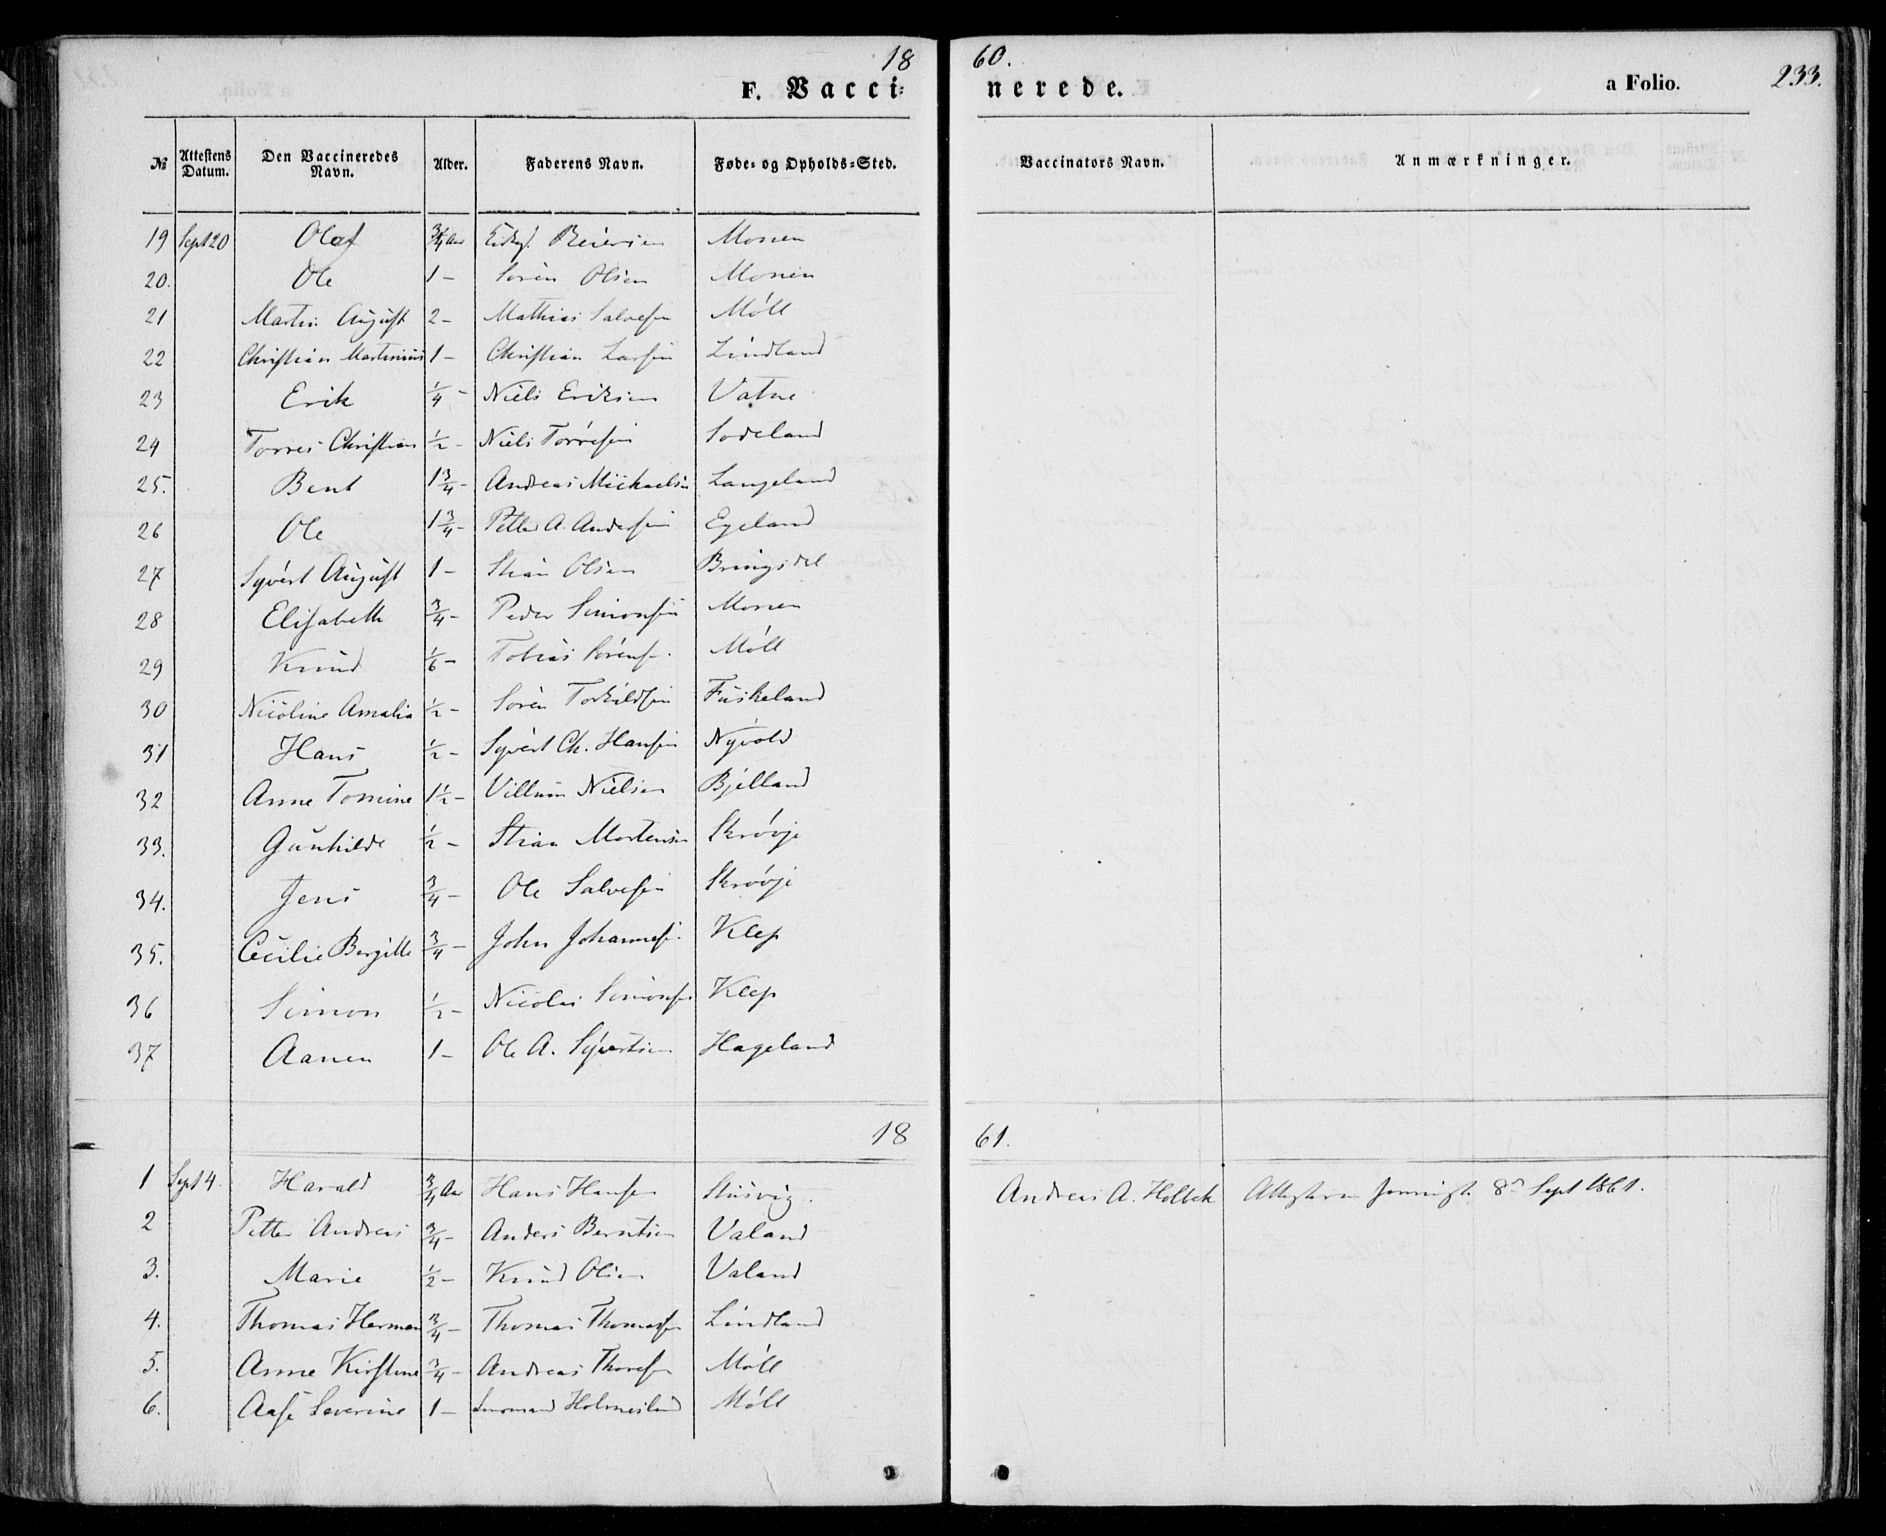 1860.
F. Vaccinerede. a Folio. 233.
№ Attestens Datum. Den Vaccineredes Navn. Alder. Faderens Navn. Føde- og Opholds-Sted. Vaccinators Navn. Anmærkninger.
19 Sept 20 Olaf 3/4 Aar Reiersen Monen
20. Ole 1 – Søren Olsen Monen
21 Martin August 2 – Mathias Salvesen Møll
22 Christian Martinius 1 – Christian Larsen Lindland
23 Erik 1/4 – Niels Eriksen Vatne
24 Torres Christian 1/2 – Niels Torresen Sodeland
25. Bent 1 3/4 – Andreas Michaelsen Langeland
26 Ole 1 3/4 – Petter A. Andersen Egeland
27 Syvert August 1 – Stian Olsen Bringsdal
28 Elisabeth 3/4 – Peder Simonsen Monen
29 Knud 1/6 – Tobias Sørens. Møll
30 Nicoline Amalia 1/2 – Søren Torkildsen Fuskeland
31 Hans 1/2 – Syvert Ch. Hansen Nyvold
32 Anne Tomine 1 1/2 – Villum Nielsen Bjelland
33. Gunhilde 1/2 – Stian Mortensen Skrøvje
34. Jens 3/4 – Ole Salvesen Skrøvje
35. Cecilie Bergitte 3/4 – John Johannes. Klep
36 Simon 1/2 – Nicolai Simonsen Klep
37 Aanen 1 – Ole A. Syvertsen Hageland
1861.
1 Sept 4. Harald 3/4 Aar Hans Hansen Stusvig. Andreas A. Holbek 8de Sept 1861.
2 Petter Andreas 3/4 – Anders Berntsen Valand
3. Marie 1/2 – Knud Olsen Valand
4. Thomas Herman 3/4 – Thomas Thomassen Lindland
5. Anne Kirstine 3/4 – Andreas Thoresen Møll
6. Aase Severine 1 – Holmesland Møll